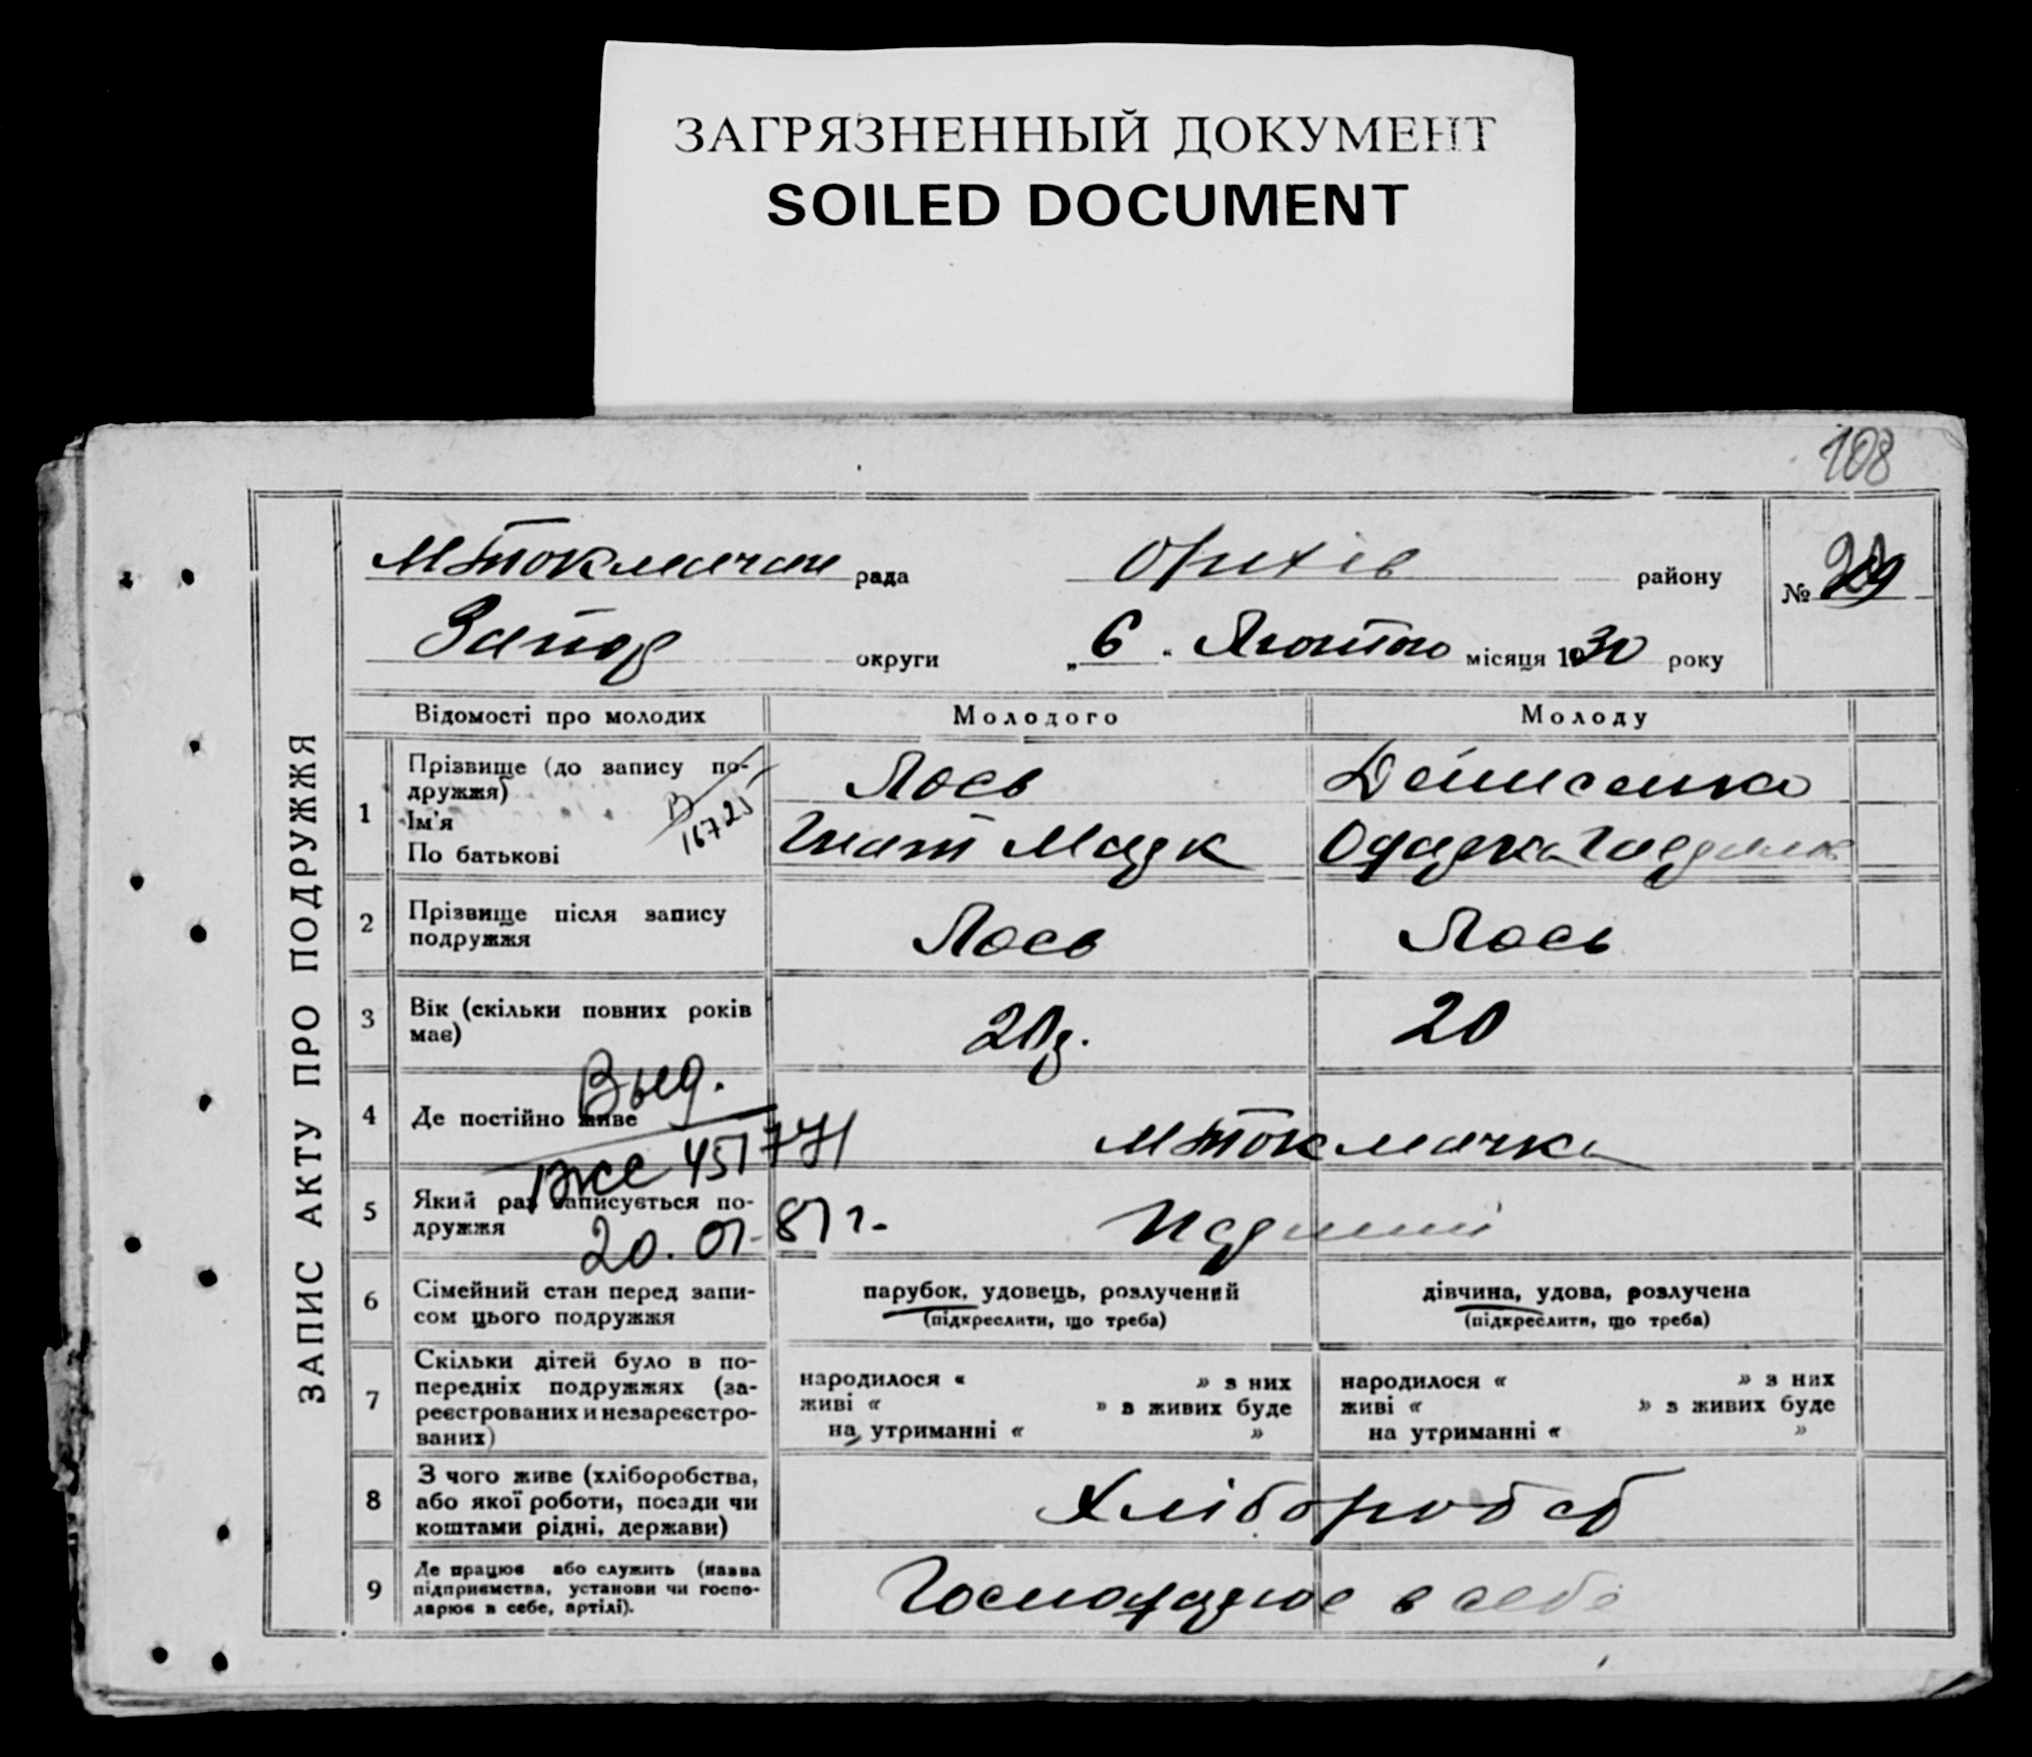 ЗАГРЯЗНЕННЫЙ ДОКУМЕНТ
SOILED DOCUMENT
108
ЗАПИС АКТУ ПРО ПОДРУЖЖЯ
МТокмачан рада Оріхів району
№ 29
Запор округи „6“ Лютого місяця 1930 року
Відомості про молодих Молодого Молоду
1 Прізвище (до запису по-
дружжя) Лось Денисенко
Ім'я
По батькові Гнат Марк Одарка
В
16725
2 Прізвище після запису
подружжя Лось Лось
3 Вік (скільки повних років
має) 20р. 20
4 Де постійно живе МТокмачка
Выд.
451771
20.01.87 г.
5 Який раз записується по-
дружжя Перший
6 Сімейний стан перед запи-
сом цього подружжя
парубок, удовець, розлучений
(підкреслити, що треба)
дівчина, удова, розлучена
(підкреслити, що треба)
7 Скільки дітей було в по-
передніх подружжях (за-
реєстрованих и незареєстро-
ваних)
народилося « » з них
живі « » в живих буде
на утриманні « »
народилося « » з них
живі « » з живих буде
на утриманні « »
8 З чого живе (хліборобства,
або якої роботи, посади чи
коштами рідні, держави)
Хлібороб
9 Де працює або служить (назва
підприємства, установи чи госпо-
дарює в себе, артілі).
Господарює в себе